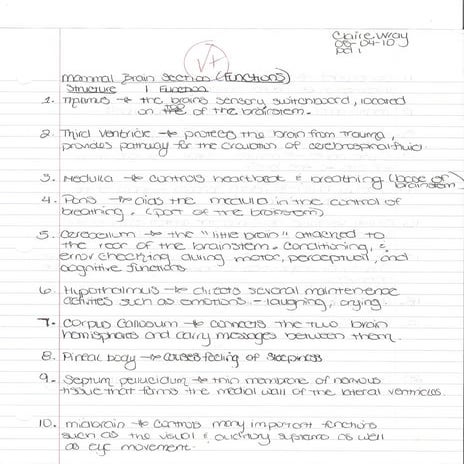 Claire Wray
05-04-10
pd 1
√+
Mammal Brain Section (Functions)
Structure | Function
1. Thalamus → the brains sensory switchboard, located
on top of the brainstem.
2. Third Ventricle → protects the brain from trauma,
provides pathway for the circulation of cerebrospinal fluid.
3. Medulla → controls heartbeat & breathing (base of
brainstem)
4. Pons → aids the medulla in the control of
breathing. (part of the brainstem)
5. Cerebellum → the "little brain" attached to
the rear of the brainstem. Conditioning, &
error checking during motor, perceptual, and
cognitive functions
6. Hypothalmus → directs several maintenence
activities such as emotions - laughing, crying.
7. Corpus Callosum → connects the two brain
hemispheres and carry messages between them.
8. Pineal body → causes feeling of sleepiness
9. Septum pellucidum → thin membrane of nervous
tissue that forms the medial wall of the lateral ventricles.
10. midbrain → controls many important functions
such as the visual & auditory systems as well
as eye movement.